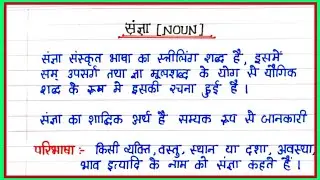 संज्ञा [NOUN]
संज्ञा संस्कृत भाषा का स्त्रीलिंग शब्द है, इसमें
सम् उपसर्ग तथा ज्ञा मूलशब्द के योग से यौगिक
शब्द के रूप मे इसकी रचना हुई है ।
संज्ञा का शाब्दिक अर्थ है सम्यक रूप से जानकारी
परिभाषा :- किसी व्यक्ति, वस्तु, स्थान या दशा, अवस्था,
भाव इत्यादि के नाम को संज्ञा कहते हैं ।